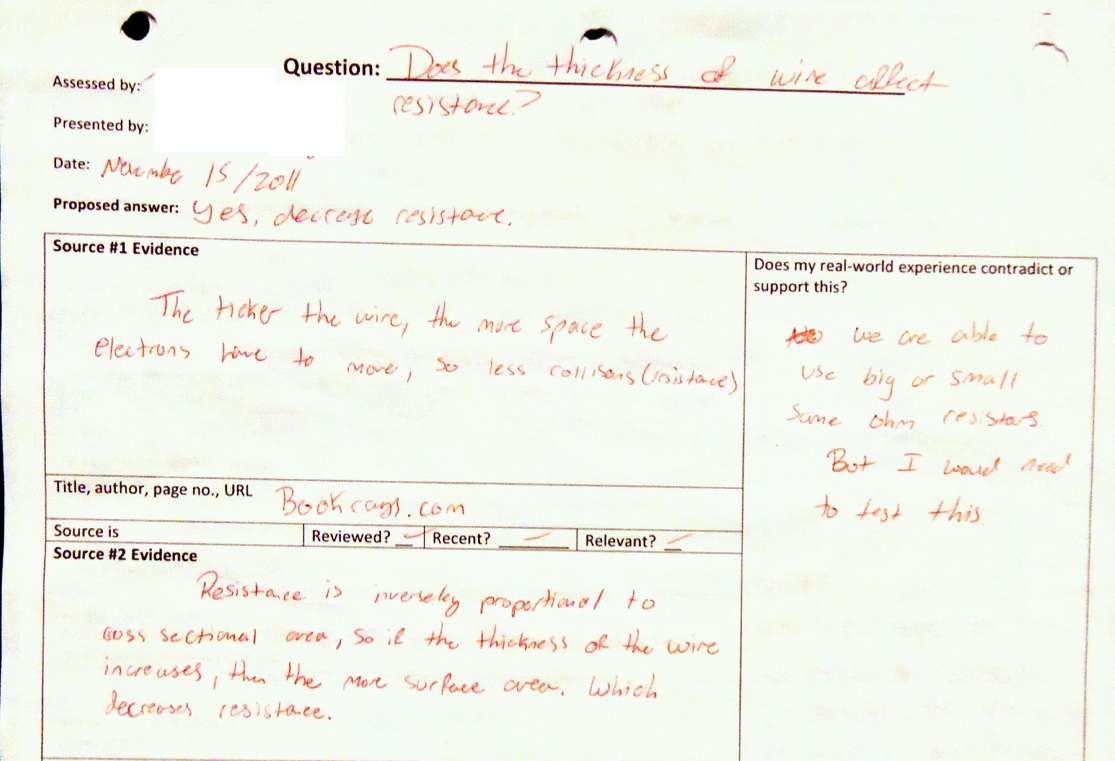 Question: Does the thickness of wire affect
resistance?
Assessed by:
Presented by:
Date: November 15/2011
Proposed answer: Yes, decrease resistance.
Source #1 Evidence
The ticker the wire, the more space the
electrons have to move, so less collisons (resistance)
Title, author, page no., URL Bookrags.com
Source is Reviewed? Recent? Relevant?
Source #2 Evidence
Resistance is inversely proportional to
cross sectional area, so if the thickness of the wire
increases, then the more surface area. Which
decreases resistance.
Does my real-world experience contradict or
support this?
we are able to
use big or small
same ohm resistors.
But I would need
to test this.